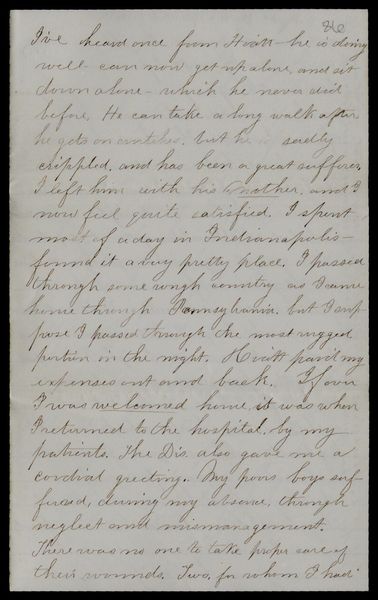 86
I've heard once from Hiatt - he is doing
well - can now get up alone, and sit
down alone - which he never did
before. He can take a long walk after
he gets on crutches. but he is sadly
crippled. and has been a great sufferer.
I left him with his Mother. and I
now feel quite satisfied. I spent
most of a day in Indianapolis -
found it a very pretty place. I passed
through some rough country as I came
home through Pennsylvania. but I sup-
pose I passed through the most rugged
portion in the night. Hiatt paid my
expenses out and back. If ever
I was welcomed home, it was when
I returned to the hospital. by my
patients. The Drs. also gave me a
cordial greeting. My poor boys suf-
fered, during my absence, through
neglect and mismanagement.
There was no one to take proper care of
their wounds. Two, for whom I had